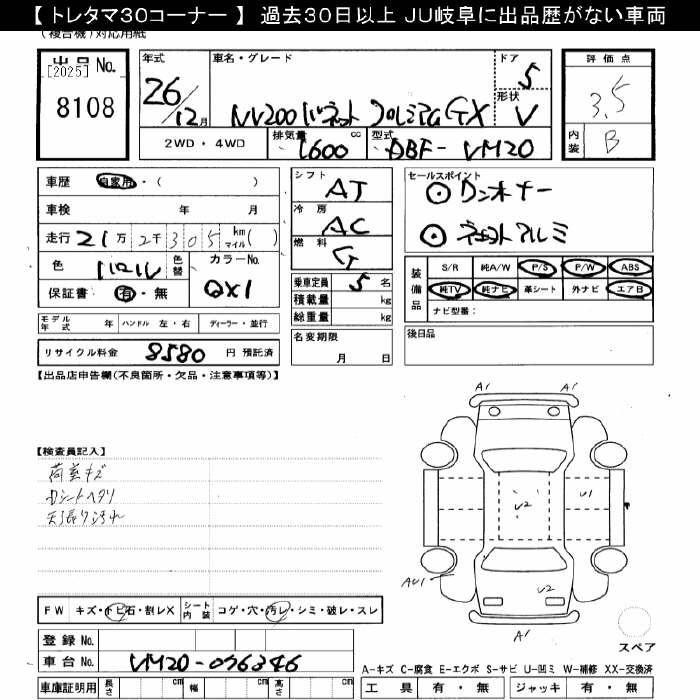 【 トレタマ30コーナー 】 過去30日以上 JU岐阜に出品歴がない車両
(複合機)対応用紙
出品 No.
[2025]
8108
年式
26/12月
車名・グレード
NV200 バネット プレミアムGX
ドア
5
形状
V
評価点
3.5
内装
B
2WD・4WD
排気量
1600 cc
型式
DBF- VM20
車歴 自家用・( )
車検 年 月
走行 21万 2千 305 km マイル ( )
色 パール 色替
カラーNo.
QX1
保証書:有・無
シフト
AT
冷房
AC
燃料
G
乗車定員 5 名
積載量 kg
総重量 kg
名変期限
月 日
セールスポイント
◎ ワンオーナー
◎ 社外アルミ
装備品
S/R 純A/W P/S P/W ABS
純TV 純ナビ 革シート 外ナビ エアB
ナビ型番:
モデル年式 年 ハンドル 左・右 ディーラー・並行
リサイクル料金 8580 円 預託済
後日品
【出品店申告欄(不良箇所・欠品・注意事項等)】
A1 A1
【検査員記入】
荷室キズ
Dシートヘタリ
天張り汚れ
U2 U1
AU1 U2
A1
FW キズ・トビ石・割レX シート内装 コゲ・穴・汚レ・シミ・破レ・スレ
スペア
登録 No.
車台 No. VM20-076346
A-キズ C-腐食 E-エクボ S-サビ U-凹ミ W-補修 XX-交換済
車庫証明用 長さ cm 幅 cm 高さ cm
工具 有・無 ジャッキ 有・無